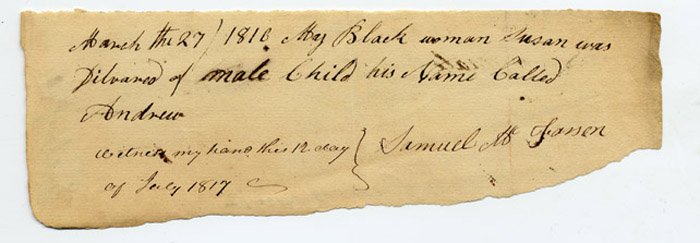 March the 27 / 1816 My Black woman Susan was
Dilvared of male Child his Name Called
Andrew
witness my hand this 12 day } Samuel Mc
of July 1817